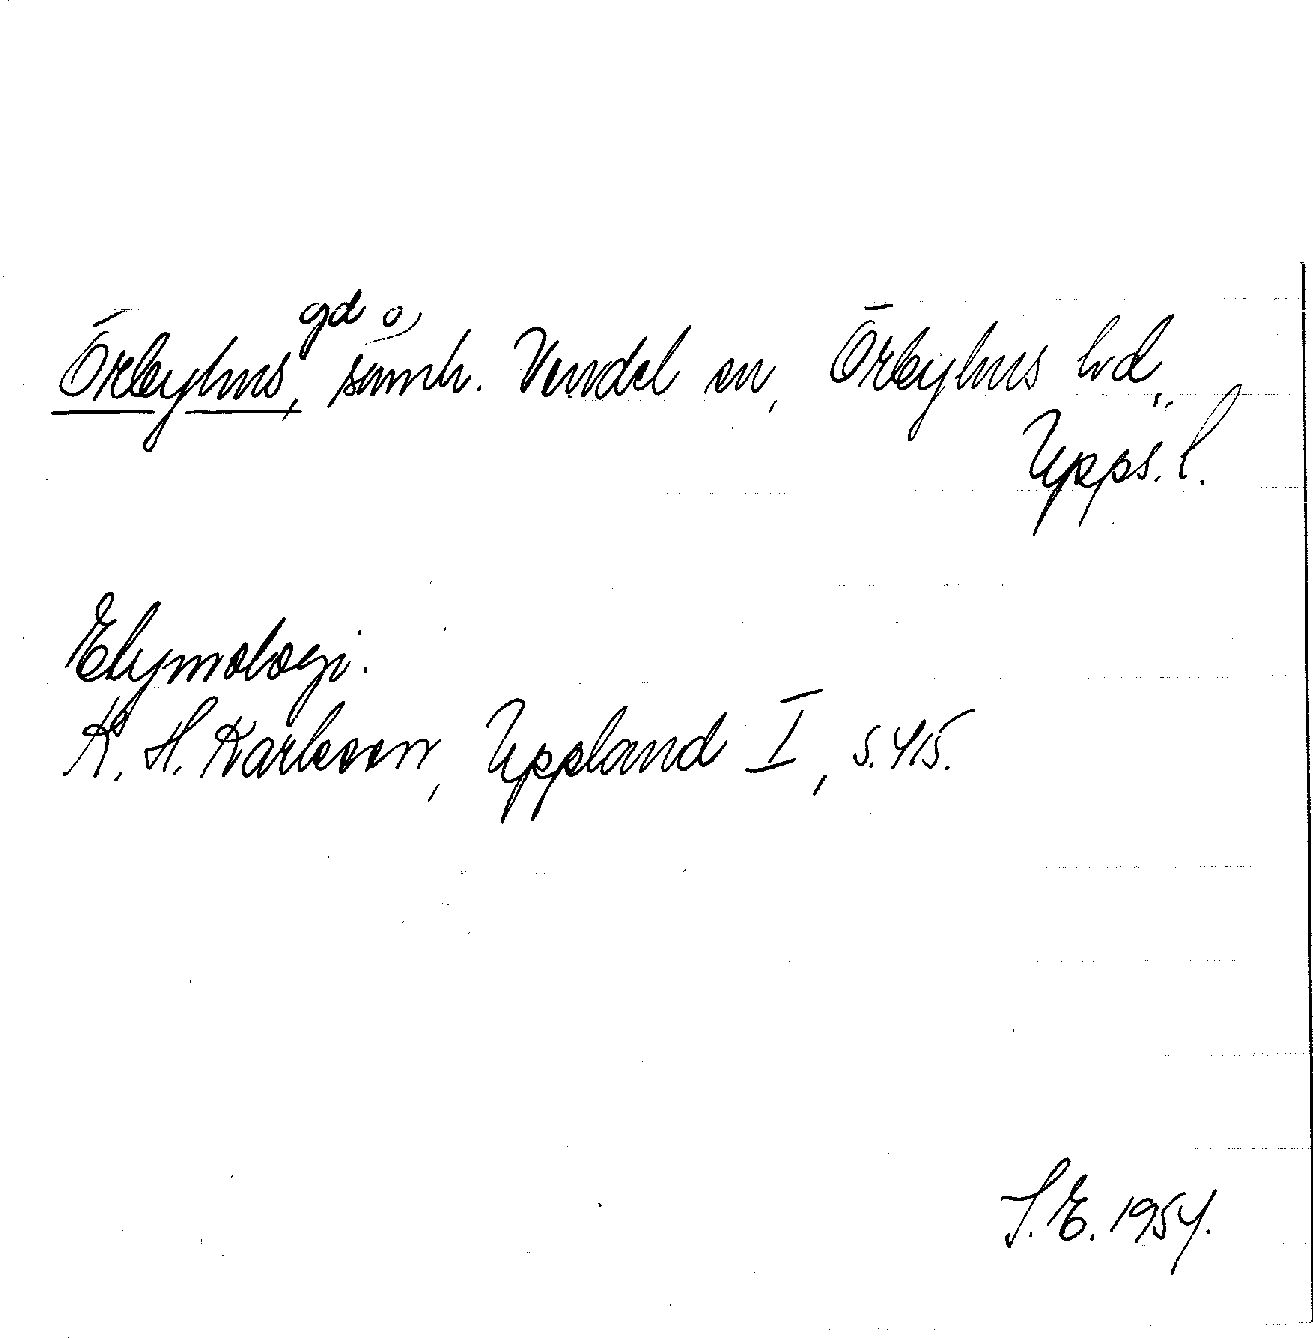 Örbyhus, gd o, samh. Vendel sn, Örbyhus hd,
Upps. l.
Etymologi.
K. H. Karlsson, Uppland I, s. 415.
S. E. 1954.